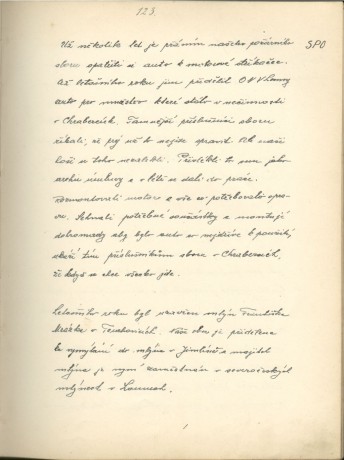 123.
SPO
Už několik let je přáním našeho požárního
sboru opatřiti si auto k motorové stříkačce.
Až letošního roku jim přidělil ONV Louny
auto pro mužstvo které stálo v nečinnosti
v Chrabercích. Tamnější příslušníci sboru
říkali, že prý už to nejde spravit ale naši
hoši se toho nezalekli. Přivlékli to sem jako
vrak a v létě se dali do práce.
Rozmontovali motor a vše co potřebovalo opra-
vu. Sehnali potřebné součástky a montují
dohromady aby bylo auto co nejdříve k použití,
ukáží tím příslušníkům sboru v Chrabercích,
že když se chce všecko jde.
Letošního roku byl uzavřen mlýn Františka
v . Naše obec je přidělena
k vymýlání do mlýna v Jimlíně a majitel
mlýna je nyní zaměstnán v severočeských
mlýnech v Lounech.